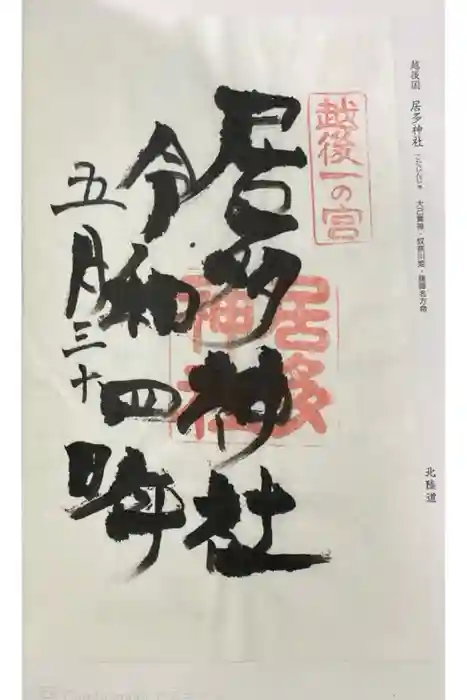 越後国 居多神社 こたじんじゃ 大己貴神・奴奈川姫・建御名方命
北陸道
越後一の宮
居多神社
居多
神社
令和四年
五月三十日